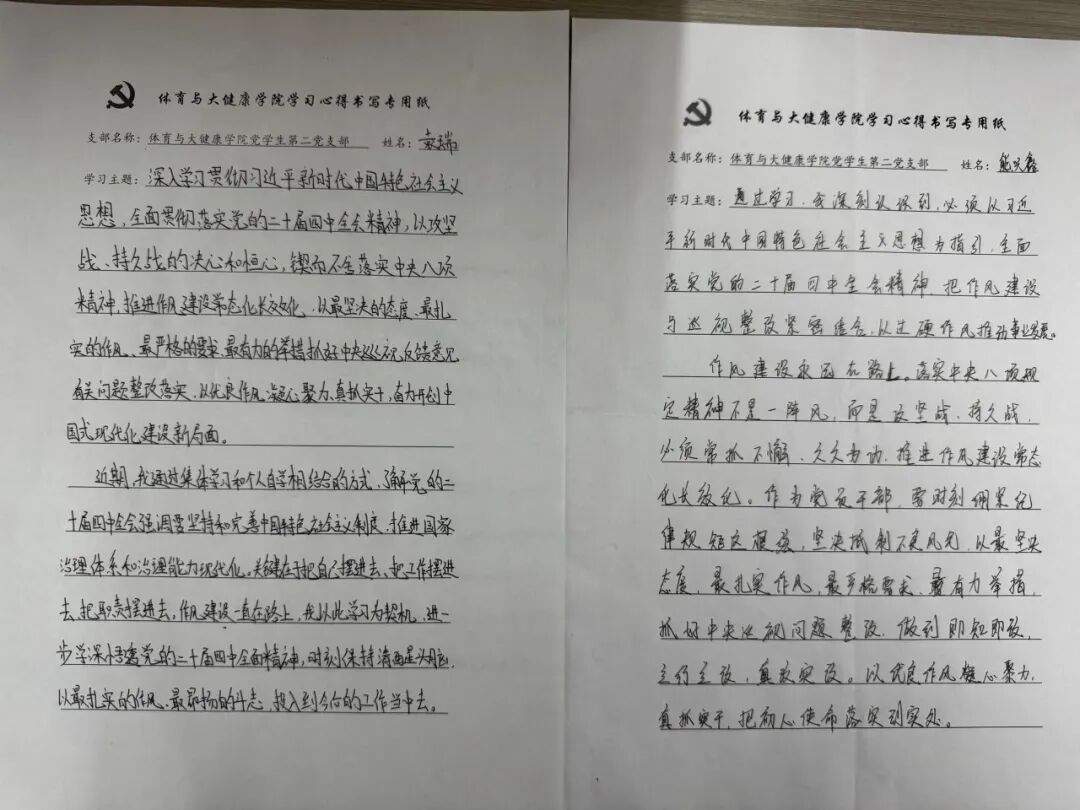 体育与大健康学院学习心得书写专用纸
支部名称：体育与大健康学院党学生第二党支部 姓名：袁瑞
学习主题：深入学习贯彻习近平新时代中国特色社会主义
思想，全面贯彻落实党的二十届四中全会精神，以攻坚
战、持久战的决心和恒心，锲而不舍落实中央八项
精神，推进作风建设常态化长效化，以最坚决的态度、最扎
实的作风、最严格的要求、最有力的举措抓好中央巡视反馈意见
有关问题整改落实，以优良作风凝心聚力、真抓实干，奋力开创中
国式现代化建设新局面。
近期，我通过集体学习和个人自学相结合的方式，了解党的二
十届四中全会强调要坚持和完善中国特色社会主义制度、推进国家
治理体系和治理能力现代化。关键在于把自己摆进去、把工作摆进
去、把职责摆进去，作风建设一直在路上，我以此学习为契机，进一
步学深悟透党的二十届四中全面精神，时刻保持清醒头脑，
以最扎实的作风、最昂扬的斗志，投入到今后的工作当中去。
体育与大健康学院学习心得书写专用纸
支部名称：体育与大健康学院党学生第二党支部 姓名：熊
学习主题：通过学习，我深刻认识到，必须以习近
平新时代中国特色社会主义思想为指引，全面
落实党的二十届四中全会精神，把作风建设
与巡视整改紧密结合，以过硬作风推动事业发展。
作风建设永远在路上。落实中央八项规
定精神不是一阵风，而是攻坚战、持久战，
必须常抓不懈、久久为功，推进作风建设常态
化长效化。作为党员干部，要时刻绷紧纪
律规矩之根弦，坚决抵制不良风气，以最坚决
态度、最扎实作风、最严格要求、最有力举措，
抓好中央巡视问题整改，做到即知即改，
立行立改，真改实改。以优良作风凝心聚力，
真抓实干，把初心使命落实到实处。